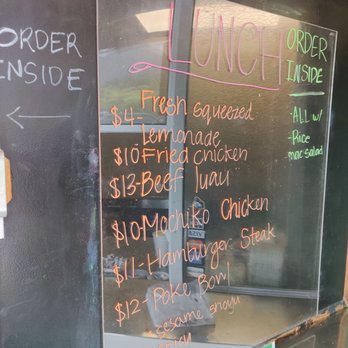 ORDER
INSIDE
LUNCH
$4- Fresh squeezed
Lemonade
$10-Fried chicken
$13-Beef luau
$10-Mochiko Chicken
$11-Hamburger Steak
$12-Poke Bowl
sesame shoyu
spicy
ORDER
INSIDE
-ALL w/
-Rice
mac salad